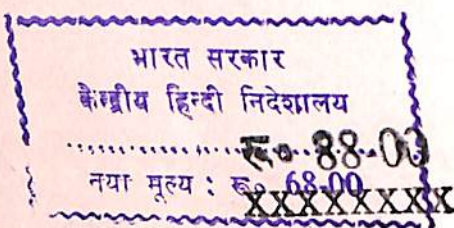 भारत सरकार
केन्द्रीय हिन्दी निदेशालय
.................रू० 88-00
नया मूल्य : रू० 68.00
XXXXXXXX